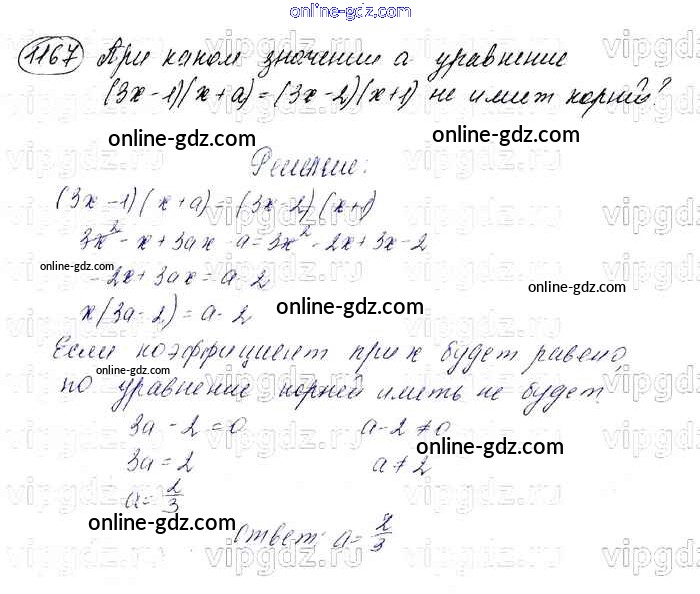 online-gdz.com
1167 При каком значении a уравнение
(3x-1)(x+a)=(3x-2)(x+1) не имеет корней?
online-gdz.com online-gdz.com
Решение:
(3x-1)(x+a)=(3x-2)(x+1)
3x²-x+3ax-a=3x²-2x+3x-2
online-gdz.com
-2x+3ax=a-2
online-gdz.com
x(3a-2)=a-2
online-gdz.com
Если коэффициент при x будет равен 0,
online-gdz.com
то уравнение корней иметь не будет.
3a-2=0 a-2≠0
online-gdz.com
3a=2 a≠2
a=2/3
online-gdz.com
Ответ: a=2/3
online-gdz.com
vipgdz.com
vipgdz.com
vipgdz.com